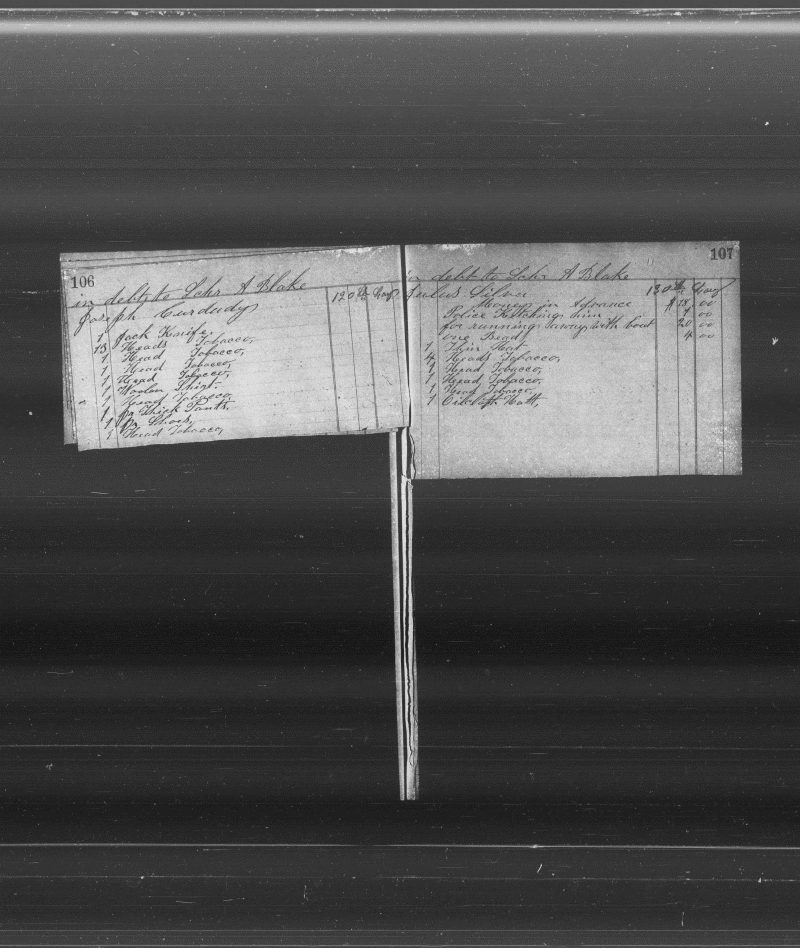 106
in debt to Schr A Blake
Joseph Curdudy 120th Lay
1 Jack Knife.
13 Heads Tobacco,
1 Head Tobacco,
1 Head Tobacco,
1 Head Tobacco,
1 Woolen Shirt.
1 Head Tobacco
1 pr Thick Pants,
1 Pr
1 Head Tobacco,
107
in debt to Schr A Blake
Julus Silva 130th Lay
Money in Advance $15 00
Police Ketching him 7 00
for running away with boat 20 00
one 4 00
1 Thin
4 Heads Tobacco,
1 Head Tobacco,
1 Head Tobacco,
1 Head Tobacco,
1 Hatt,